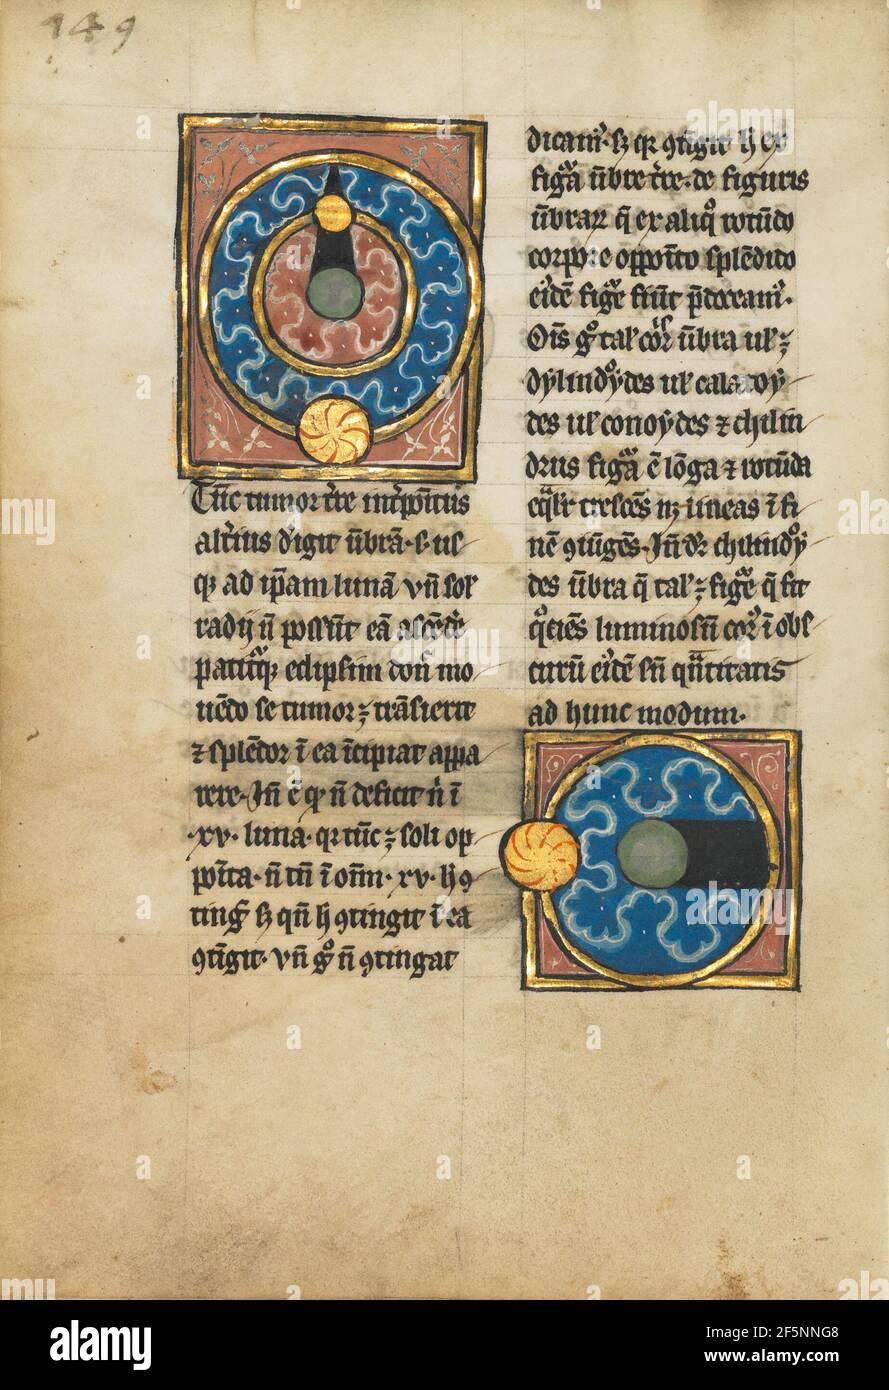 149
Tūc tumor t're int'poītus
alt'ius d'igit ūbrā · s · us
qꝫ ad ip̄am lunā vn̄ sol'
radij n̄ possūt eā ascēd'e
patit'qꝫ eclipsim don̄ mo
uēdo se tumorꝫ trāsierit
⁊ splēdor ī ea īcipiat appa
rere · Jn̄ ē qꝫ n̄ deficit n̄ ī
· xv · luna · qr tūc ⁊ soli op
poīta · n̄ tn̄ ī om̄i · xv · h̄ ꝯ
ting' sꝫ qn̄ h̄ ꝯtingit ī ea
ꝯtigit · vn̄ gͦ n̄ ꝯtingat
dicam' · sꝫ qꝫ ꝯtigit h̄ ex
figᵃ ūbre t're · de figuris
ūbraꝝ q̄ ex aliqͦ rotūdo
corpore oppoīto splēdido
eidē fig'e fiūt p̄doceam' ·
Oīs gͦ tal' cor'is ūbra ul' ⁊
dylindͦydes ul' calatoy
des ul' conoydes ⁊ chilin
drus figᵃ ē lōga ⁊ rotūda
eq̄l'r cresces ī fi
nē ꝯiūges · Jn̄ dr̄ chilindͦy
des ūbra q̄ tal' ⁊ fig'e q̄ fit
qͦciēs luminosū cor' ī obs
curū eidē sn̄ qn̄titatis
ad hunc modum ·
alamy
a
Image ID: 2F5NNG8
www.alamy.com